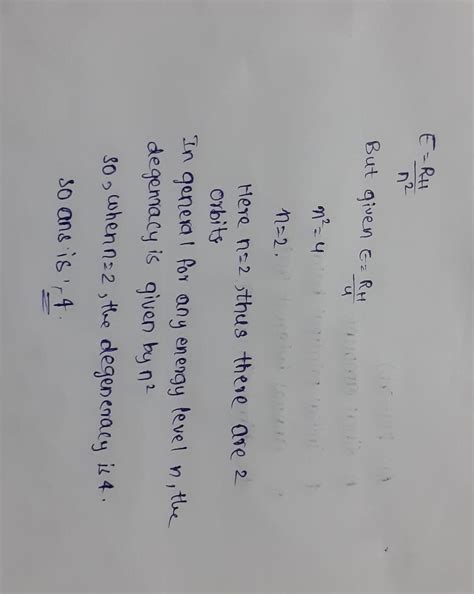 E = RH/n²
But given E = RH/4
n² = 4
n = 2.
Here n=2, thus there are 2
orbits
In general for any energy level n, the
degenracy is given by n²
so, when n=2, the degeneracy is 4.
so ans is ', 4.